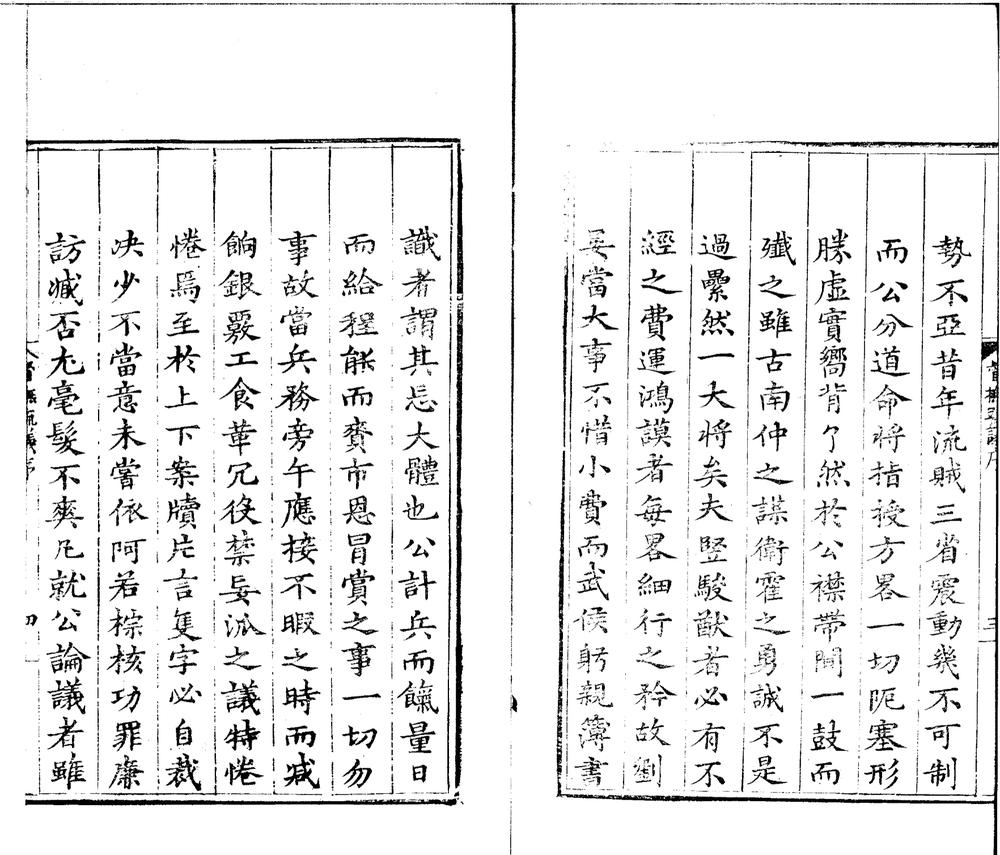 勢不亞昔年流賊三省震動幾不可制
而公分道命將指授方畧一切阨塞形
勝虛實嚮背了然於公襟帶間一鼓而
殲之雖古南仲之謀衛霍之勇誠不是
過纍然一大將矣夫竪駿猷者必有不
經之費運鴻謨者每畧細行之矜故劉
晏當大事不惜小費而武侯躬親簿書
識者謂其忘大體也公計兵而餼量日
而給程能而賚市恩冒賞之事一切勿
事故當兵務旁午應接不暇之時而减
餉銀覈工食革冗役禁妄派之議特惓
惓焉至於上下案牘片言隻字必自裁
决少不當意未嘗依阿若綜核功罪廉
訪臧否尤毫髮不爽凡就公論議者雖